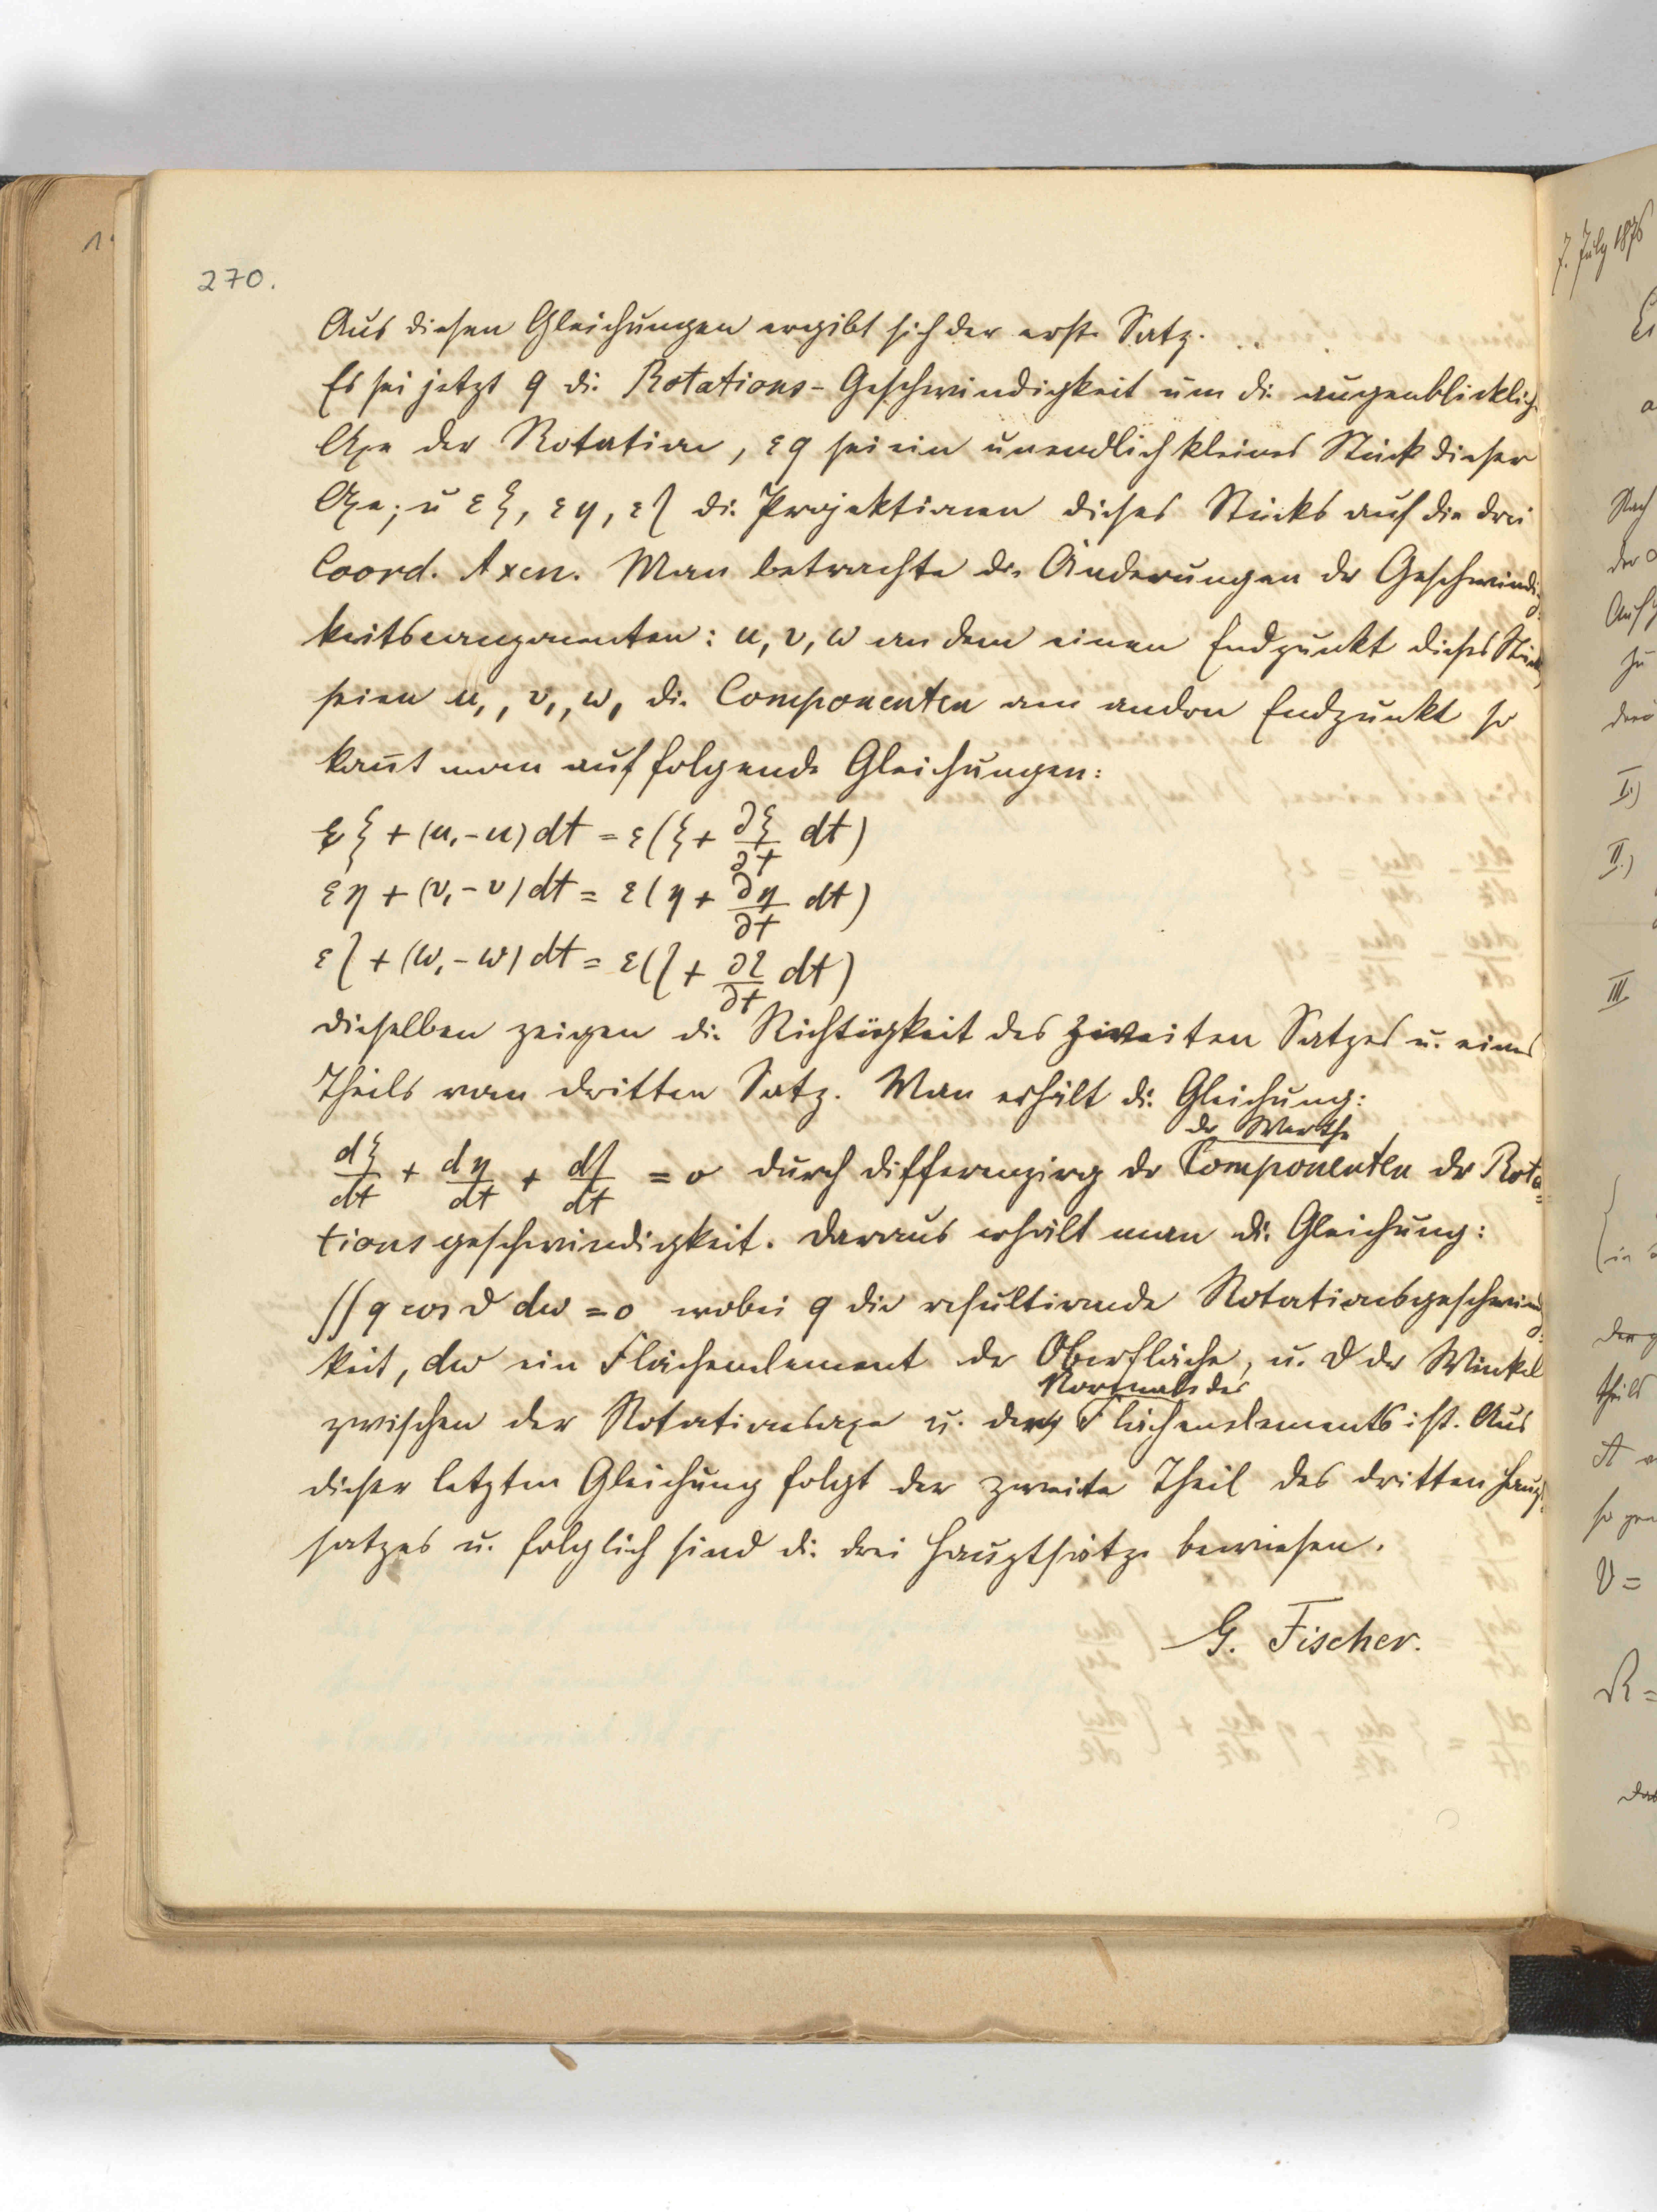 270.
Aus diesen Gleichungen ergibt sich der erste Satz.
Es sei jetzt q die Rotations-Geschwindigkeit um die augenblickliche
Axe der Rotation, εq sei ein unendlich kleines Stück dieser
Axe; u εξ, εη, εζ die Projektionen dieses Stücks auf die drei
Coord. Axen. Man betrachte die Änderungen der Geschwindig-
keitscomponenten: u, v, w an dem einen Endpunkt dieses Stücks,
seien u,, v,, w, die Componenten am andern Endpunkt so
kommt man auf folgende Gleichungen:
εξ + (u,-u) dt = ε(ξ + ∂ξ/∂t dt)
εη + (v,-v) dt = ε(η + ∂η/∂t dt)
εζ + (w,-w) dt = ε(ζ + ∂ζ/∂t dt)
dieselben zeigen die Richtigkeit des zweiten Satzes u. eines
Theils vom dritten Satz. Man erhält die Gleichung:
der Werthe
dξ/dt + dη/dt + dζ/dt = 0 durch differenzirg der Componenten der Rota-
tionsgeschwindigkeit. Daraus erhält man die Gleichung:
∫∫ q cos ϑ dω = 0 wobei q die resultirende Rotationsgeschwindig-
keit, dω ein Flächenelement der Oberfläche, u. ϑ der Winkel
Normale des
zwischen der Rotationsaxe u. der Flächenelements ist. Aus
dieser letzten Gleichung folgt der zweite Theil des dritten Haupt-
satzes u. folglich sind die drei Hauptsätze bewiesen.
G. Fischer.
7. July 1876
Nach
der
Auf
zu
drei
I.)
II.)
III
theils
A
V =
R =